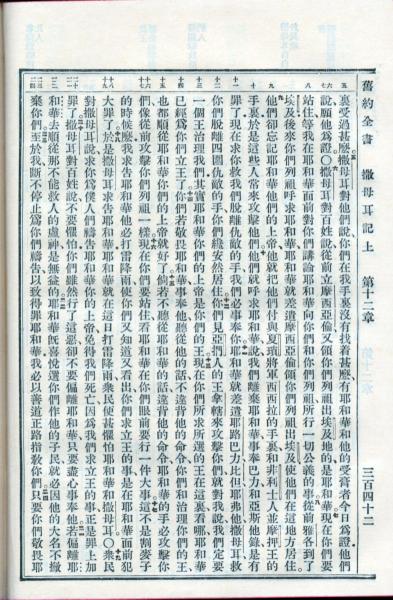 舊約全書 撒母耳記上 第十二章 三百四十二
裏受過甚麼撒母耳對他們說你們在我手裏沒有找着甚麼有耶和華和他的受膏者今日爲證他們
說願他爲證○撒母耳對百姓說從前立摩西亞倫又領你們列祖出埃及地的是耶和華現在你們要
站住等我在耶和華面前對你們講論耶和華向你們和你們列祖所行一切公義的事從前雅各到了
埃及後來你們列祖呼求耶和華耶和華就差遣摩西亞倫領你們列祖出埃及使他們在這地方居住
他們卻忘記耶和華他們的上帝他就把他們付與夏瑣將軍西西拉的手裏和非利士人並摩押王的
手裏於是這些人常來攻擊他們他們就呼求耶和華說我們離棄耶和華事奉巴力和亞斯他錄是有
罪了現在求你救我們脫離仇敵的手我們必事奉你耶和華就差遣耶路巴力比但耶弗他撒母耳救
你們脫離四圍仇敵的手你們纔安然居住你們見亞捫人的王拿轄來攻擊你們就對我說我們定要
一個王治理我們其實耶和華你們的上帝是你們的王現在你們所求所選的王在這裏看哪耶和華
已經爲你們立王了你們若敬畏耶和華事奉他聽從他的話不違背他的命令你們和治理你們的王
也都順從耶和華你們的上帝就好了倘若不聽從耶和華的話違背他的命令耶和華的手必攻擊你
們像從前攻擊你們列祖一樣現在你們要站住看耶和華在你們眼前要行一件大事這不是割麥子
的時候麼我求告耶和華他必打雷降雨使你們又知道又看出你們求立王的事是在耶和華面前犯
大罪了於是撒母耳求告耶和華耶和華就在這日打雷降雨衆民便甚懼怕耶和華和撒母耳○衆民
對撒母耳說求你爲僕人們禱告耶和華你的上帝免得我們死亡因爲我們求立王的事正是罪上加
罪了撒母耳對百姓說不要懼怕你們雖然行了這惡卻不要偏離耶和華只要盡心事奉他若偏離耶
和華去順從那不能救人的虛神是無益的耶和華既喜悅選你們作他的子民就必因他的大名不撇
棄你們至於我斷不停止爲你們禱告以致得罪耶和華我必以善道正路指教你們只要你們敬畏耶
五
七六
八
九
十
十一
十二
十三
十四
十五
十六
十七
十八
十九
二十
二一
二二
二三
二四